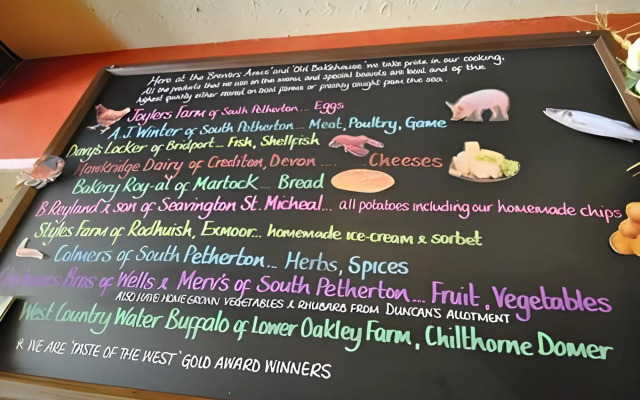 Here at the Brewers Arms and 'Old Bakehouse' we take pride in our cooking.
All the products that we use on the menu and special boards are local and of the
highest quality either reared on local farms or freshly caught from the sea.
Taylers Farm of South Petherton... Eggs
A.J Winter of South Petherton.... Meat, Poultry, Game
Davy's Locker of Bridport... Fish, Shellfish
Hawkridge Dairy of Crediton, Devon ..... Cheeses
Bakery Roy-al of Martock.... Bread
B.Rayland & son of Seavington St. Micheal... all potatoes including our homemade chips
Styles Farm of Rodhuish, Exmoor... homemade ice-cream & sorbet
Colmers of South Petherton... Herbs, Spices
Bros of Wells & Merv's of South Petherton.... Fruit, Vegetables
ALSO HAVE HOME GROWN VEGETABLES & RHUBARB FROM DUNCAN'S ALLOTMENT
West Country Water Buffalo of Lower Oakley Farm, Chilthorne Domer
& WE ARE 'TASTE OF THE WEST' GOLD AWARD WINNERS